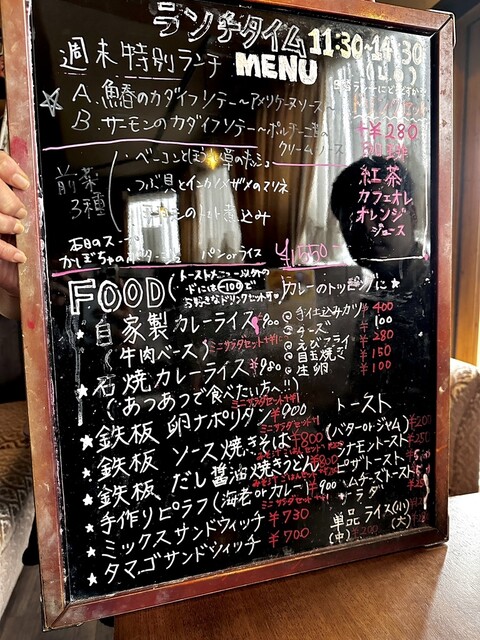 ランチタイム 11:30~14:30
MENU (L.O)
週末特別ランチ
A.鰆のカダイフソテー~アメリケーヌソース~
B.サーモンのカダイフソテー~ポルチーニ茸の
クリームソース
+¥280
紅茶
カフェオレ
オレンジ
ジュース
前菜
3種
・ベーコンとほうれん草のキッシュ
・つぶ貝とインカのめざめのマリネ
トマト煮込み
本日のスープ
かぼちゃのポタージュ パンorライス ¥1,550
FOOD (トーストメニュー以外の
フードには€100で
お好きなドリンクセット可♥)
カレーのトッピングに★
自家製カレーライス ¥900
(牛肉ベース) ミニサラダセット付
@手仕込みカツ ¥400
@チーズ ¥100
@えびフライ ¥280
@目玉焼き ¥150
@生卵 ¥100
★石焼カレーライス ¥980
(あつあつで食べたい方へ!!)
ミニサラダセット付
★鉄板 卵ナポリタン ¥900
ミニサラダセット付
★鉄板 ソース焼きそば ¥800
★鉄板 だし醤油焼きうどん ¥800
★手作りピラフ(海老orカレー) ¥900
ミニサラダセット付
★ミックスサンドウィッチ ¥730
★タマゴサンドウィッチ ¥700
トースト
(バターorジャム) ¥200
シナモントースト ¥250
ピザトースト
ハムチーズトースト
サラダ
単品ライス(小)
(中) (大)